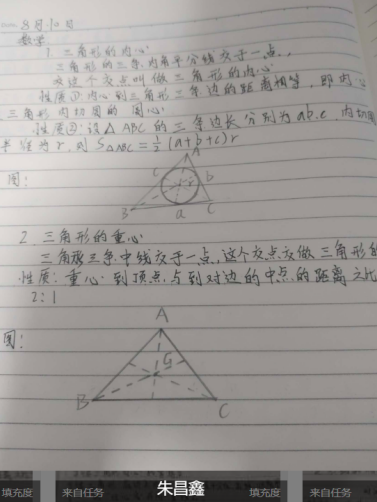 8月10日
数学
1. 三角形的内心
三角形的三条内角平分线交于一点,
这个交点叫做三角形的内心
性质①内心到三角形三条边的距离相等,即内心
三角形内切圆的圆心
性质②:设△ABC的三条边长分别为a b.c 内切圆
半径为r,则 S△ABC = 1/2 (a+b+c)r
图:
A
c
b
r
B
a
C
2. 三角形的重心
三角形三条中线交于一点,这个交点叫做三角形的
性质:重心到顶点与到对边的中点的距离之比
2:1
图:
A
G
B
C
填充度
来自任务
朱昌鑫
填充度
来自任务